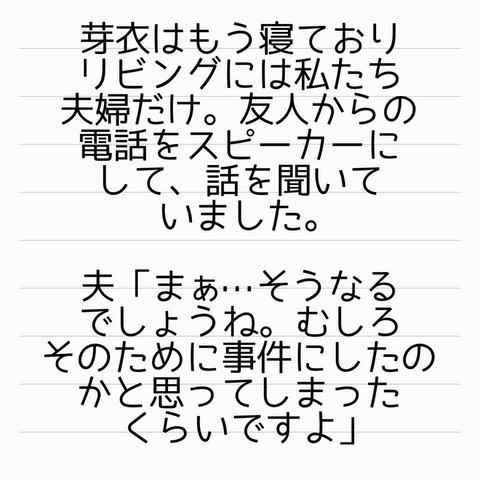 芽衣はもう寝ており
リビングには私たち
夫婦だけ。友人からの
電話をスピーカーに
して、話を聞いて
いました。
夫「まぁ…そうなる
でしょうね。むしろ
そのために事件にしたの
かと思ってしまった
くらいですよ」